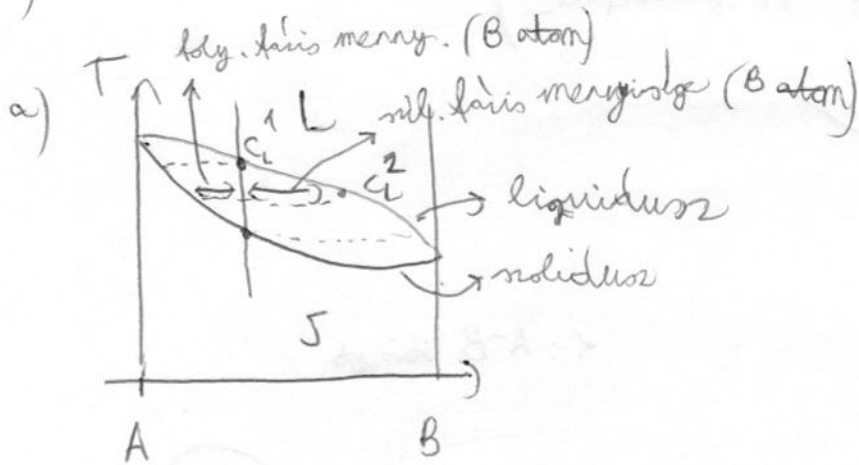 T foly. fázis menny. (B atom)
a) L szil. fázis mennyisége (B atom)
C_L^1
C_L^2
liquidusz
szolidusz
S
A B